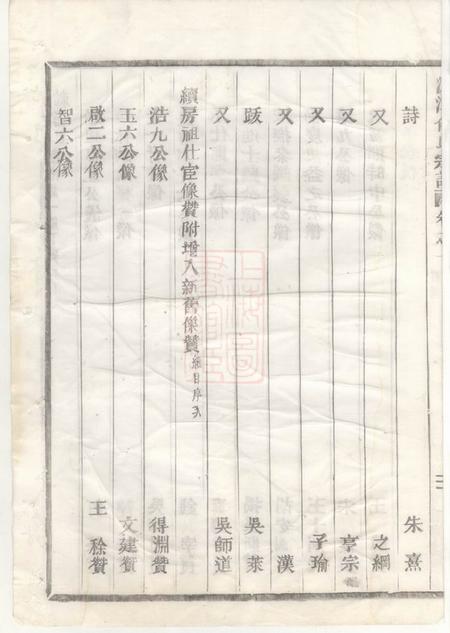 詩 朱熹
又 之綱
又 亨宗
又 子瑜
又 漢
跋 吳萊
又 吳師道
續房祖仕宦像贊附增入新舊像贊 細目序次
浩九公像 得淵贊
玉六公像 文建贊
啟二公像
智六公像 王稌贊